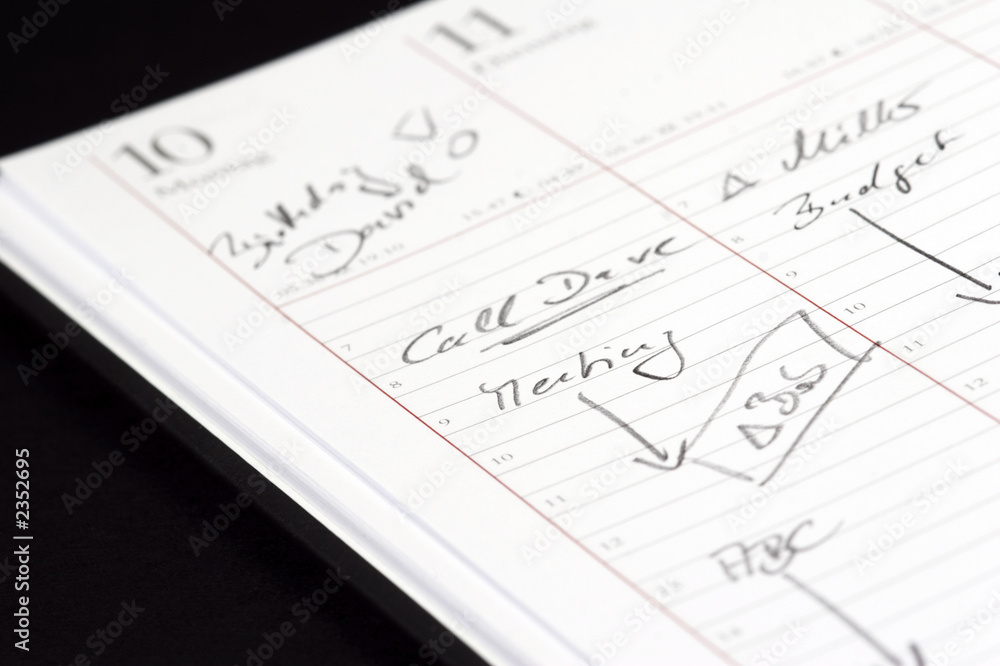 10
Montag
Birthday
David
7
Call Dave
8
Meeting
9
10
11
12
ABC
11
Dienstag
7
Miller
8
Budget
9
10
Bob
11
12
Adobe Stock | #2352695